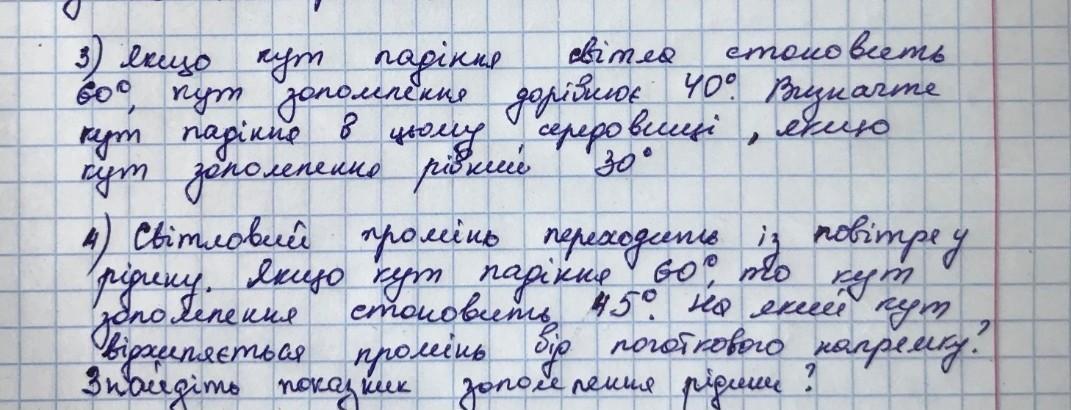 3) Якщо кут падіння світла становить
60°, кут заломлення дорівнює 40°. Визначте
кут падіння в цьому середовищі, якщо
кут заломлення рівний 30°
4) Світловий промінь переходить із повітря у
рідину. Якщо кут падіння 60°, то кут
заломлення становить 45°. На який кут
відхиляється промінь від початкового напрямку?
Знайдіть показник заломлення рідини?